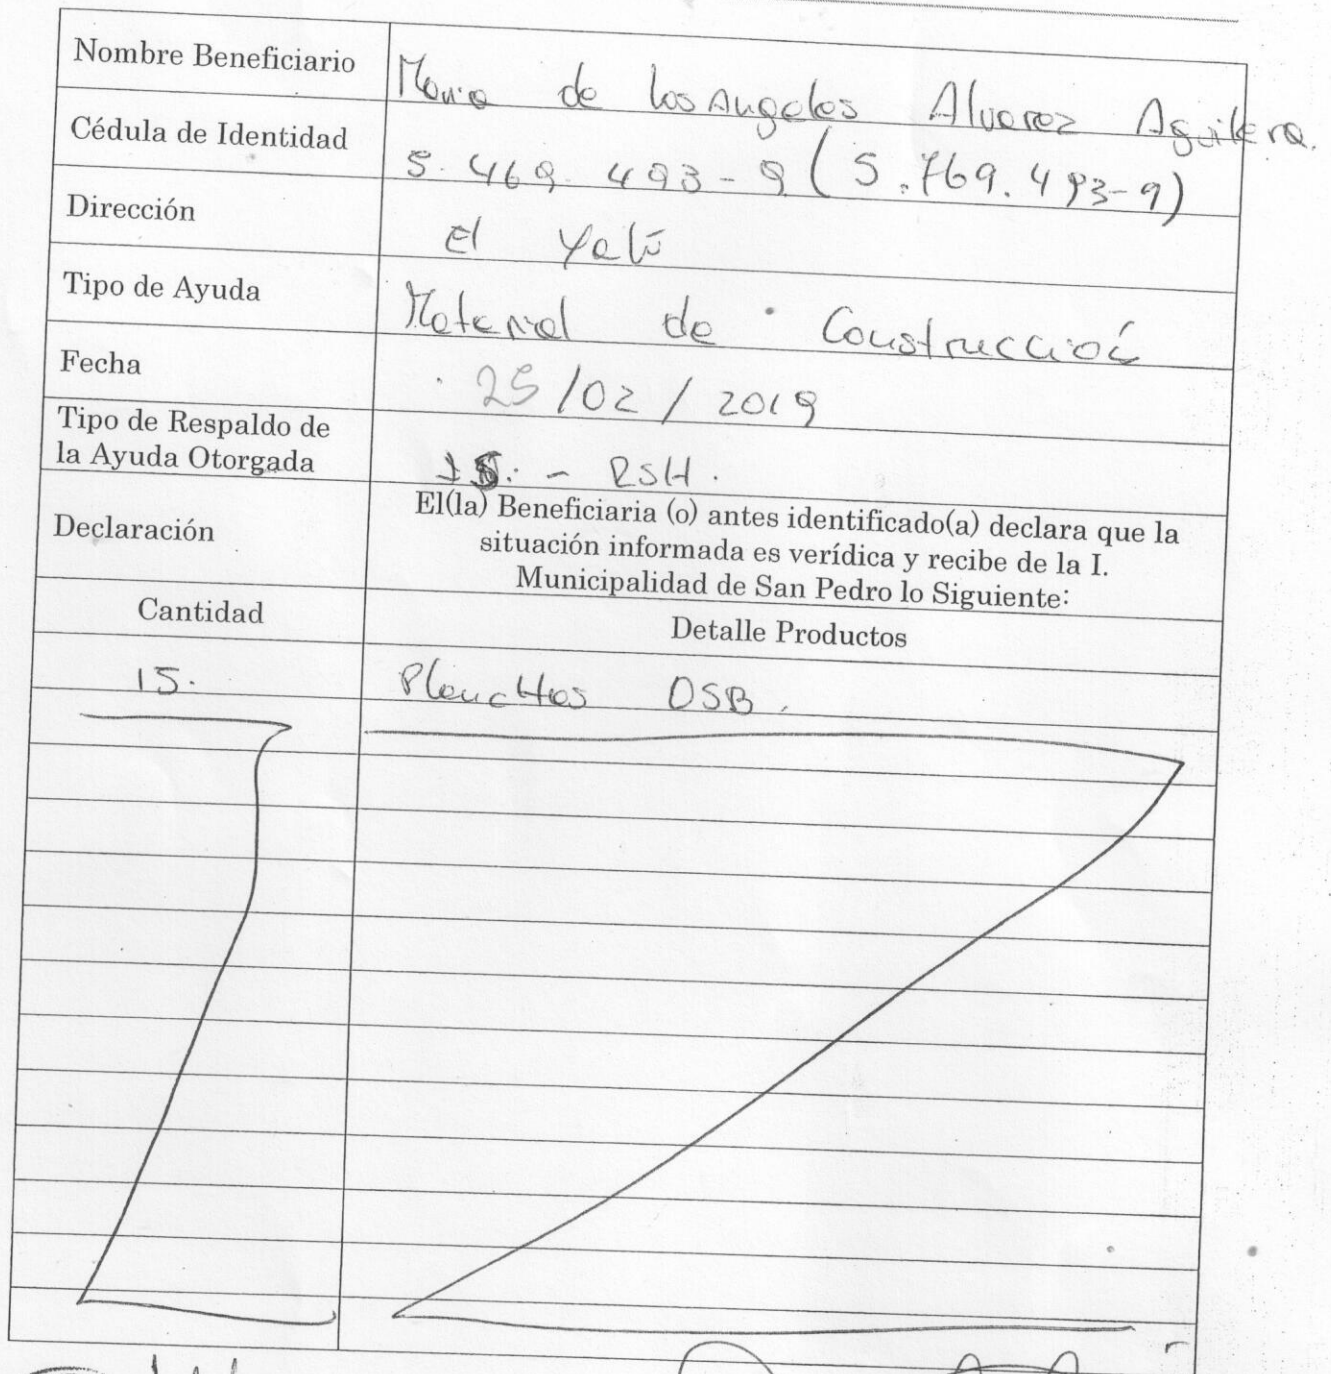 Nombre Beneficiario
Maria de los Angeles Alvarez Aguilera.
Cédula de Identidad
5.469.493-9 (5.769.493-9)
Dirección
El Yali
Tipo de Ayuda
Material de Construcción
Fecha
25/02/2019
Tipo de Respaldo de
la Ayuda Otorgada
- RSH.
Declaración
El(la) Beneficiaria (o) antes identificado(a) declara que la
situación informada es verídica y recibe de la I.
Municipalidad de San Pedro lo Siguiente:
Cantidad
Detalle Productos
15.
Planchas OSB.